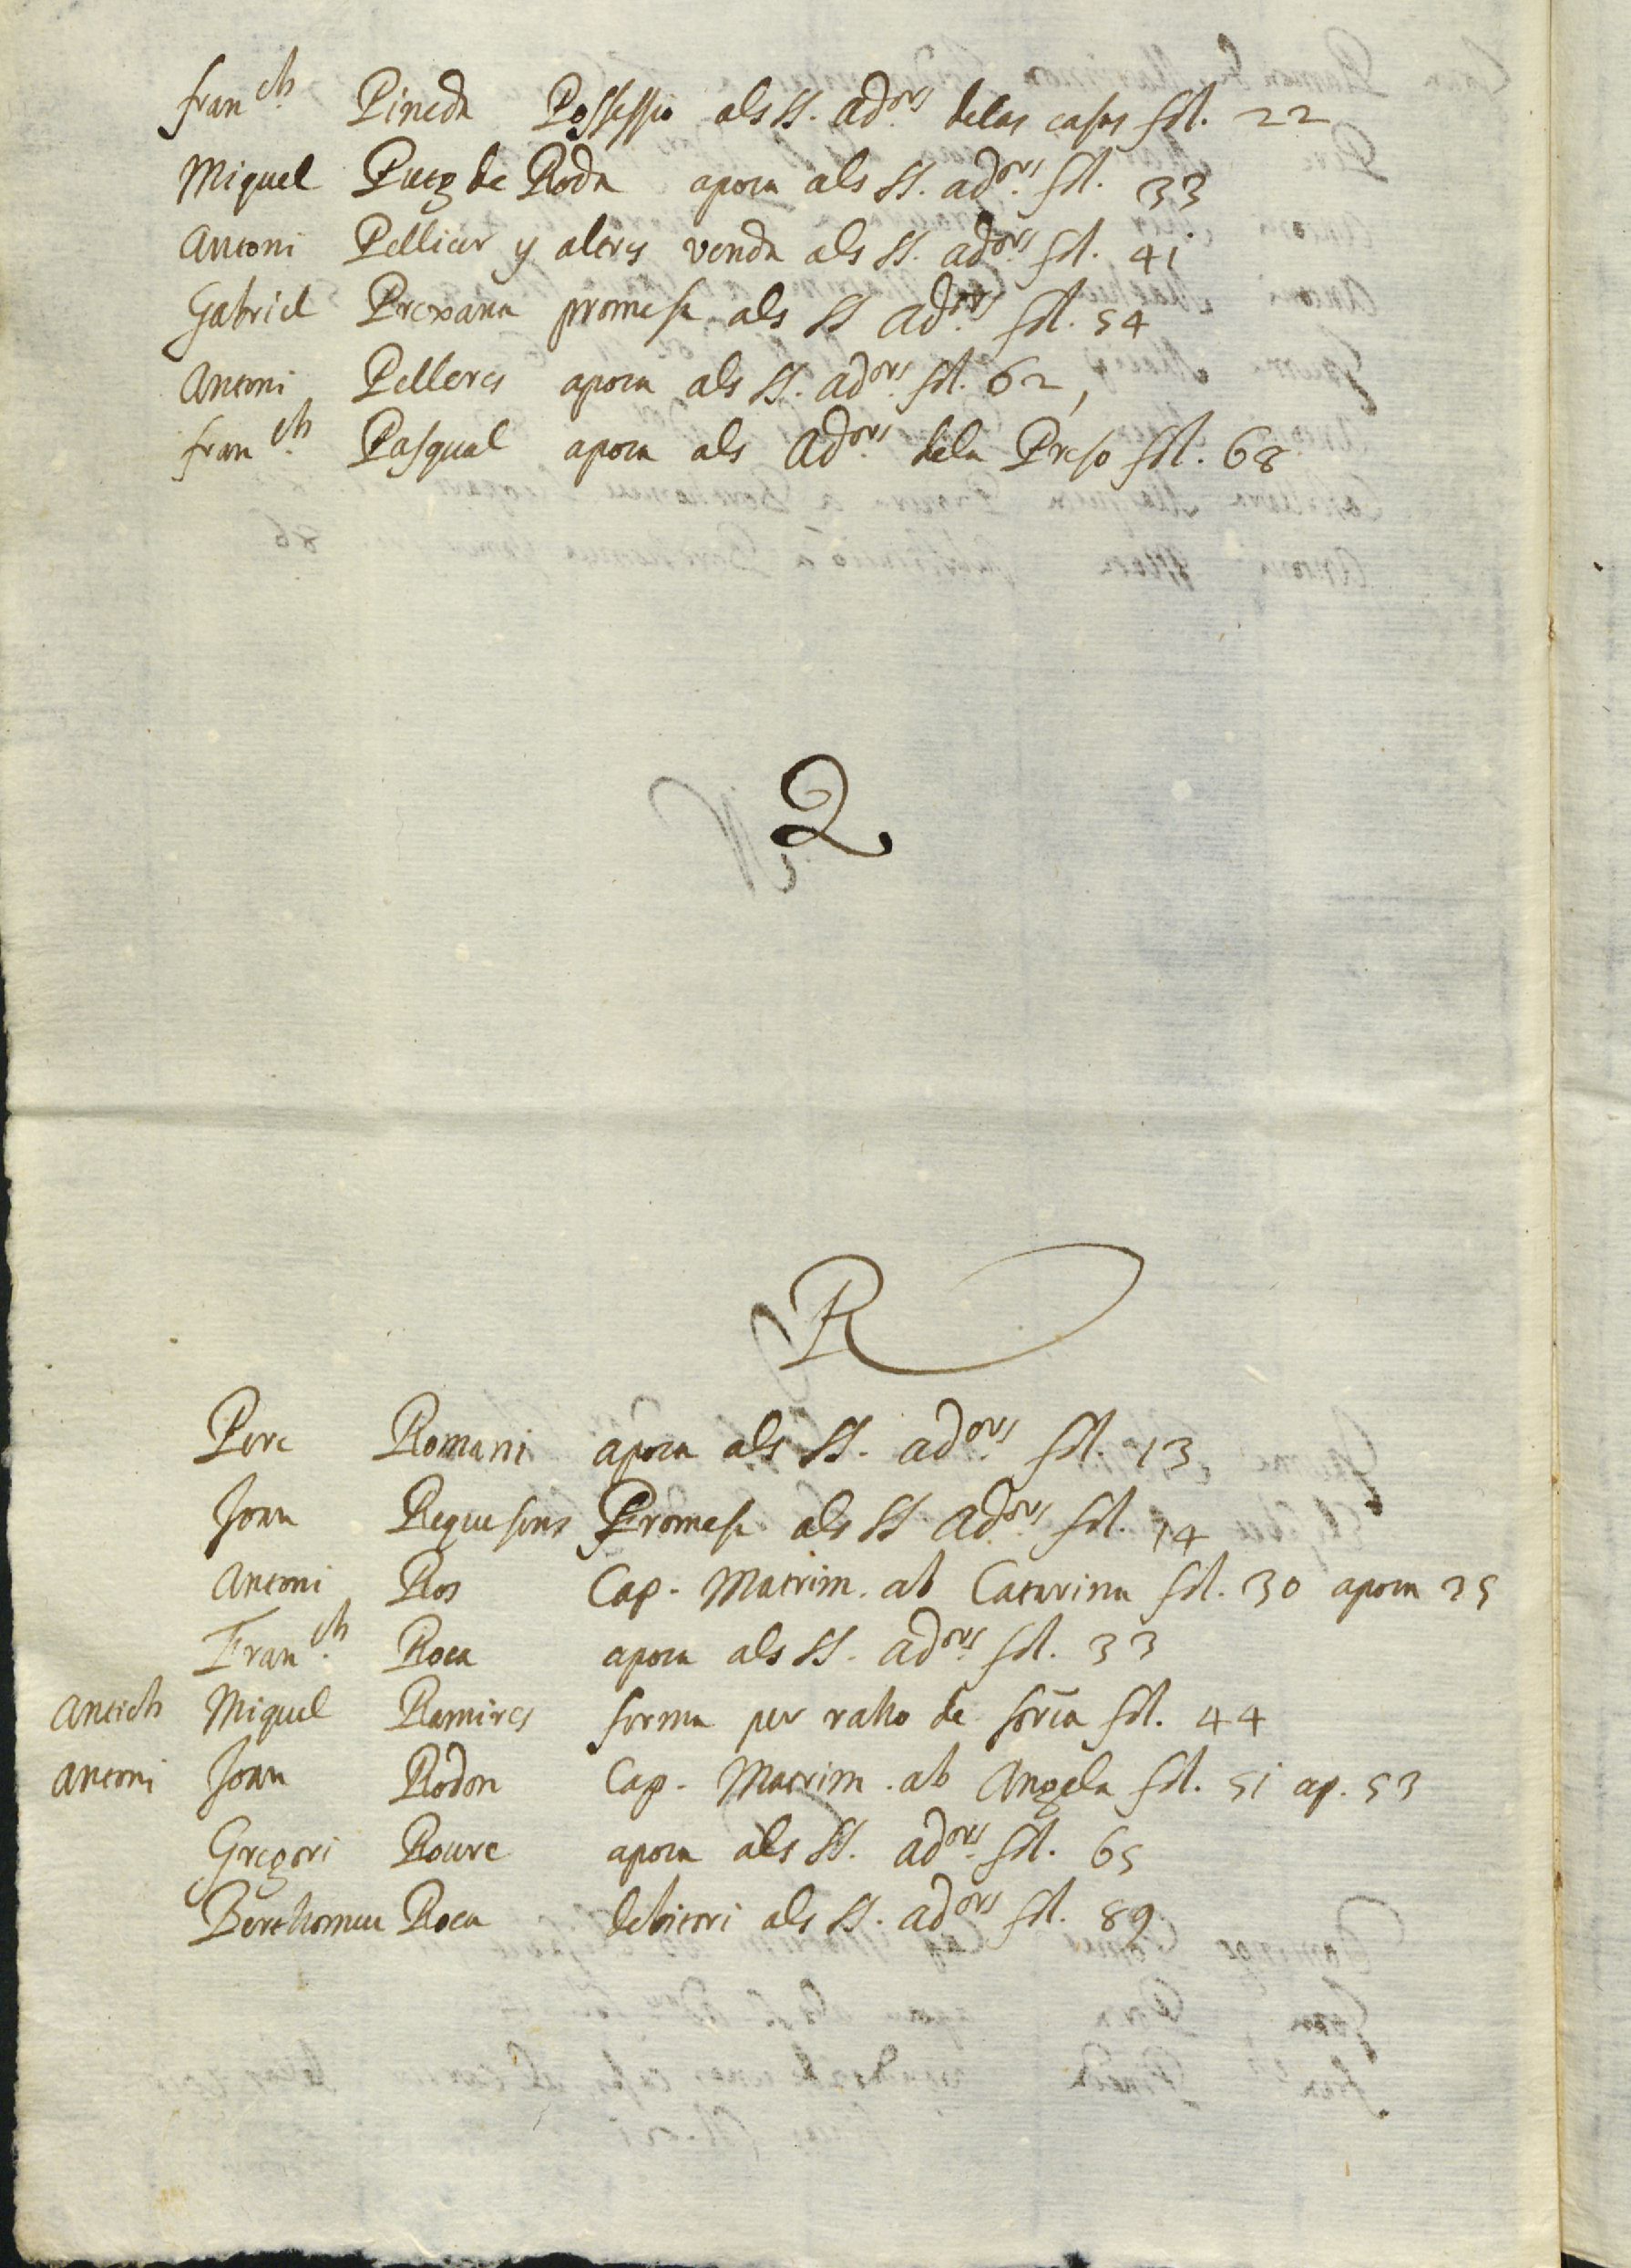 fran.ch Pineda Possessio als SS. ador.s delas casas fol. 22
Miquel Puig de Roda apoca als SS. ador.s fol. 33
Antoni Pellicer y altres venda als SS. ador.s fol. 41
Gabriel Prexana promesa als SS ador.s fol. 54
Antoni Pelleres apoca als SS. ador.s fol. 62,
fran.ch Pasqual apoca als Ador.s dela Preso fol. 68
Q
R
Pere Romani apoca als SS. ador.s fol. 13
Joan Requesens Promesa als SS Ador.s fol. 14
Antoni Ros Cap. Matrim. ab Caterina fol. 30 apoca 35
Fran.ch Roca apoca als SS. ador.s fol. 33
Antich Miquel Ramires ferma per raho de fol. 44
Antoni Joan Rodon Cap. Matrim. ab Angela fol. 51 ap. 53
Gregori Roure apoca als SS. ador.s fol. 65
Berthomeu Roca debitori als SS. ador.s fol. 89